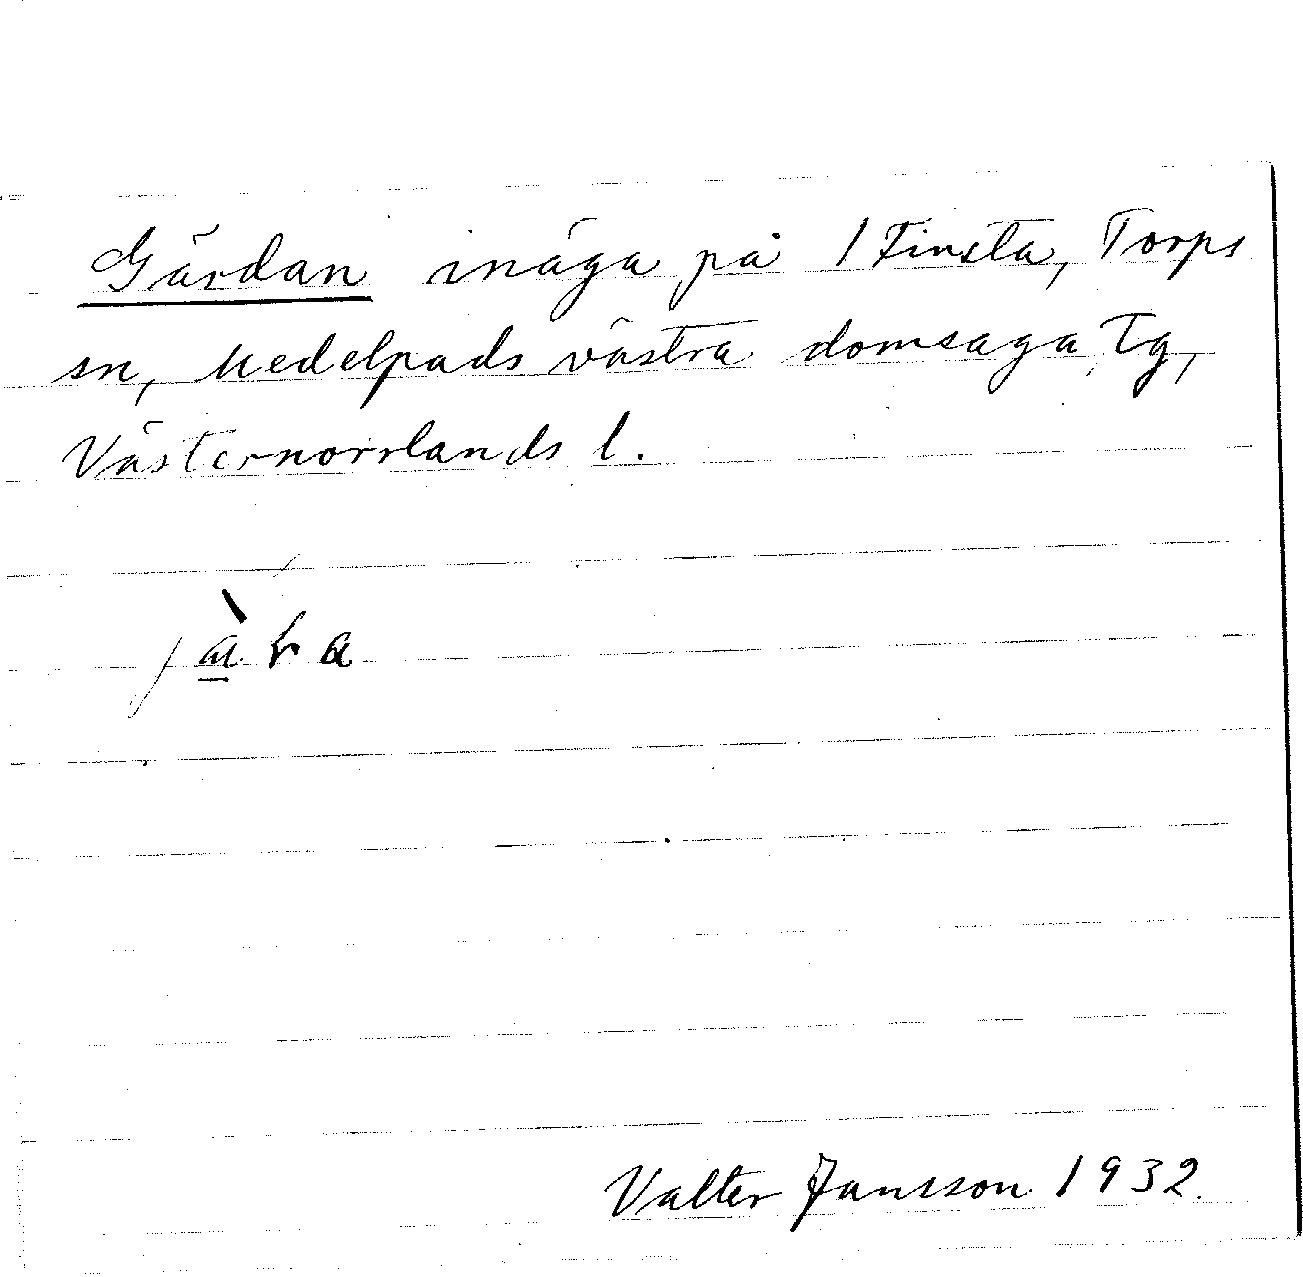 Gärdan inäga på 1 Finsta, Torps
sn, Medelpads västra domsaga Tg,
Västernorrlands l.
Valter Jansson 1932.